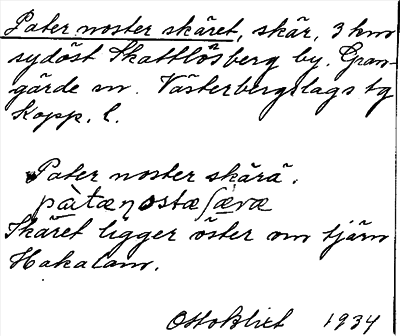 Pater noster skäret, skär, 3 km
sydöst Skattlösberg by. Gran-
gärde sn. Västerbergslags tg
Kopp. l.
Pater noster skärä.
pàtæꞃostæʃæ̀ræ
Skäret ligger öster om tjärn
Hakalam.
Otto Blixt 1934